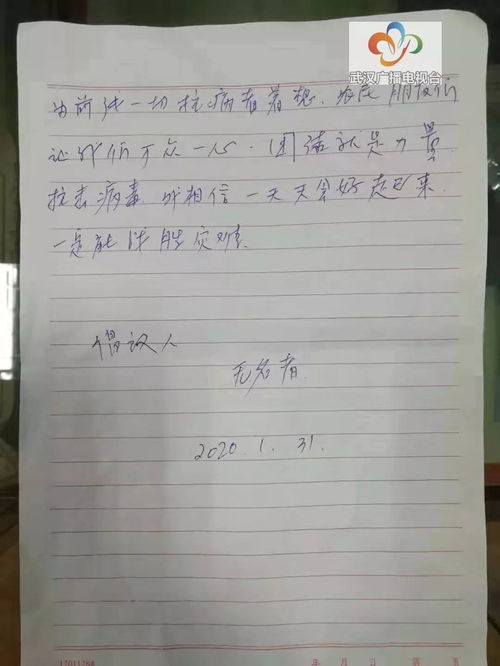 武汉广播电视台
为前线一切抗病者着想.  朋友们
让我们万众一心.团结就是力量
抗击病毒.我相信一天天会好起来.
一定能战胜灾难.
倡议人
无名者.
2020.1.31.
17011784
年 月 日 第 页